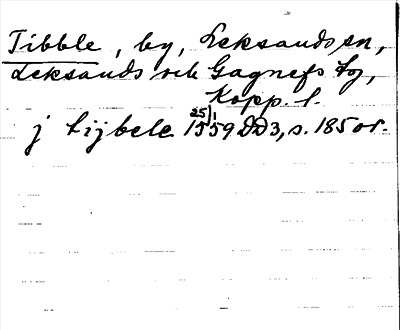 Tibble, by, Leksands sn,
Leksands och Gagnefs tg,
Kopp. l.
j tijbele 25/1 1559 DD3, s. 185 or.